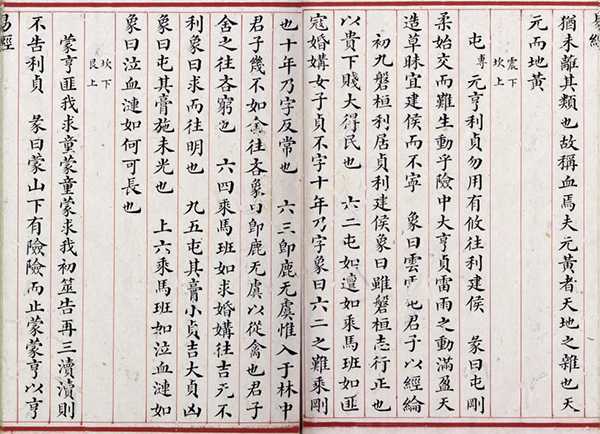 易經
猶未離其類也故稱血焉夫元黃者天地之雜也天
元而地黃
震下
坎上
屯專 元亨利貞勿用有攸往利建侯 彖曰屯剛
柔始交而難生動乎險中大亨貞雷雨之動滿盈天
造草昧宜建侯而不寧 象曰雲君子以經綸
初九磐桓利居貞利建侯象曰雖磐桓志行正也
以貴下賤大得民也 六二屯如邅如乘馬班如匪
寇婚媾女子貞不字十年乃字象曰六二之難乘剛
也十年乃字反常也 六三卽鹿无虞惟入于林中
君子幾不如舍往吝象曰卽鹿无虞以從禽也君子
舍之往吝窮也 六四乘馬班如求婚媾往吉无不
利象曰求而往明也 九五屯其膏小貞吉大貞凶
象曰屯其膏施未光也 上六乘馬班如泣血漣如
象曰泣血漣如何可長也
坎下
艮上
蒙亨匪我求童蒙童蒙求我初筮告再三瀆瀆則
不告利貞 彖曰蒙山下有險險而止蒙蒙亨以亨
易經